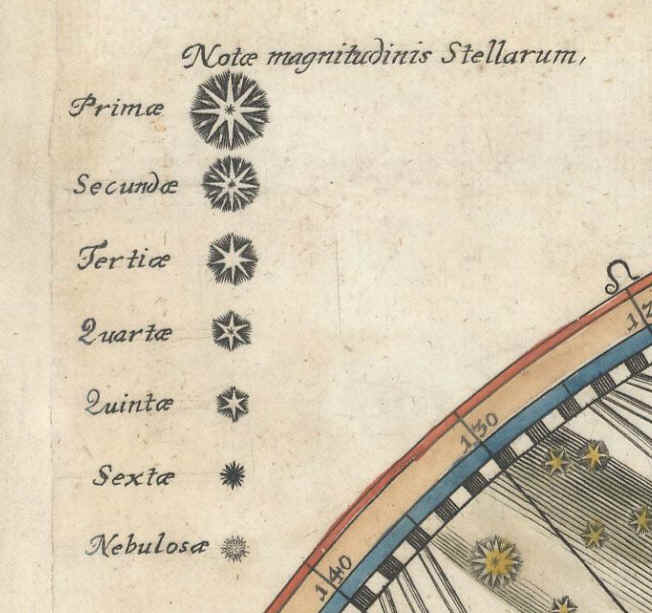 Notæ magnitudinis Stellarum,
Primæ
Secundæ
Tertiæ
Quartæ
Quintæ
Sextæ
Nebulosæ
♌
130
140